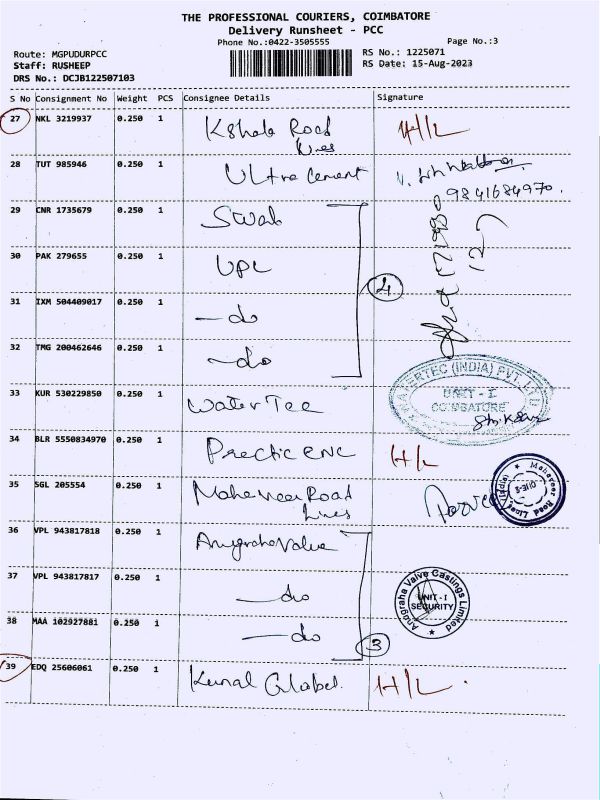 THE PROFESSIONAL COURIERS, COIMBATORE
Delivery Runsheet - PCC
Phone No.:0422-3505555 Page No.:3
Route: MGPUDURPCC RS No.: 1225071
Staff: RUSHEEP RS Date: 15-Aug-2023
DRS No.: DCJB122507103
S No Consignment No Weight PCS Consignee Details Signature
27 NKL 3219937 0.250 1 Road H/L
28 TUT 985946 0.250 1 Ultra Cement
9841684970.
29 CNR 1735679 0.250 1 Swab
30 PAK 279655 0.250 1 UPL
4
31 IXM 504409017 0.250 1 —do
32 TMG 200462646 0.250 1 —do
33 KUR 530229850 0.250 1 Water Tec
WATERTEC (INDIA) PVT. LTD.
UNIT - I
COIMBATORE
34 BLR 5550834970 0.250 1 H/L
35 SGL 205554 0.250 1 Maheveer Road
Lines
Maheveer Road Lines (India)
36 VPL 943817818 0.250 1 Anugraha Valve
37 VPL 943817817 0.250 1 —do
Anugraha Valve Castings Limited
UNIT - I
SECURITY
38 MAA 102927881 0.250 1 —do
3
39 EDQ 25606061 0.250 1 Kunal Global. H/L.